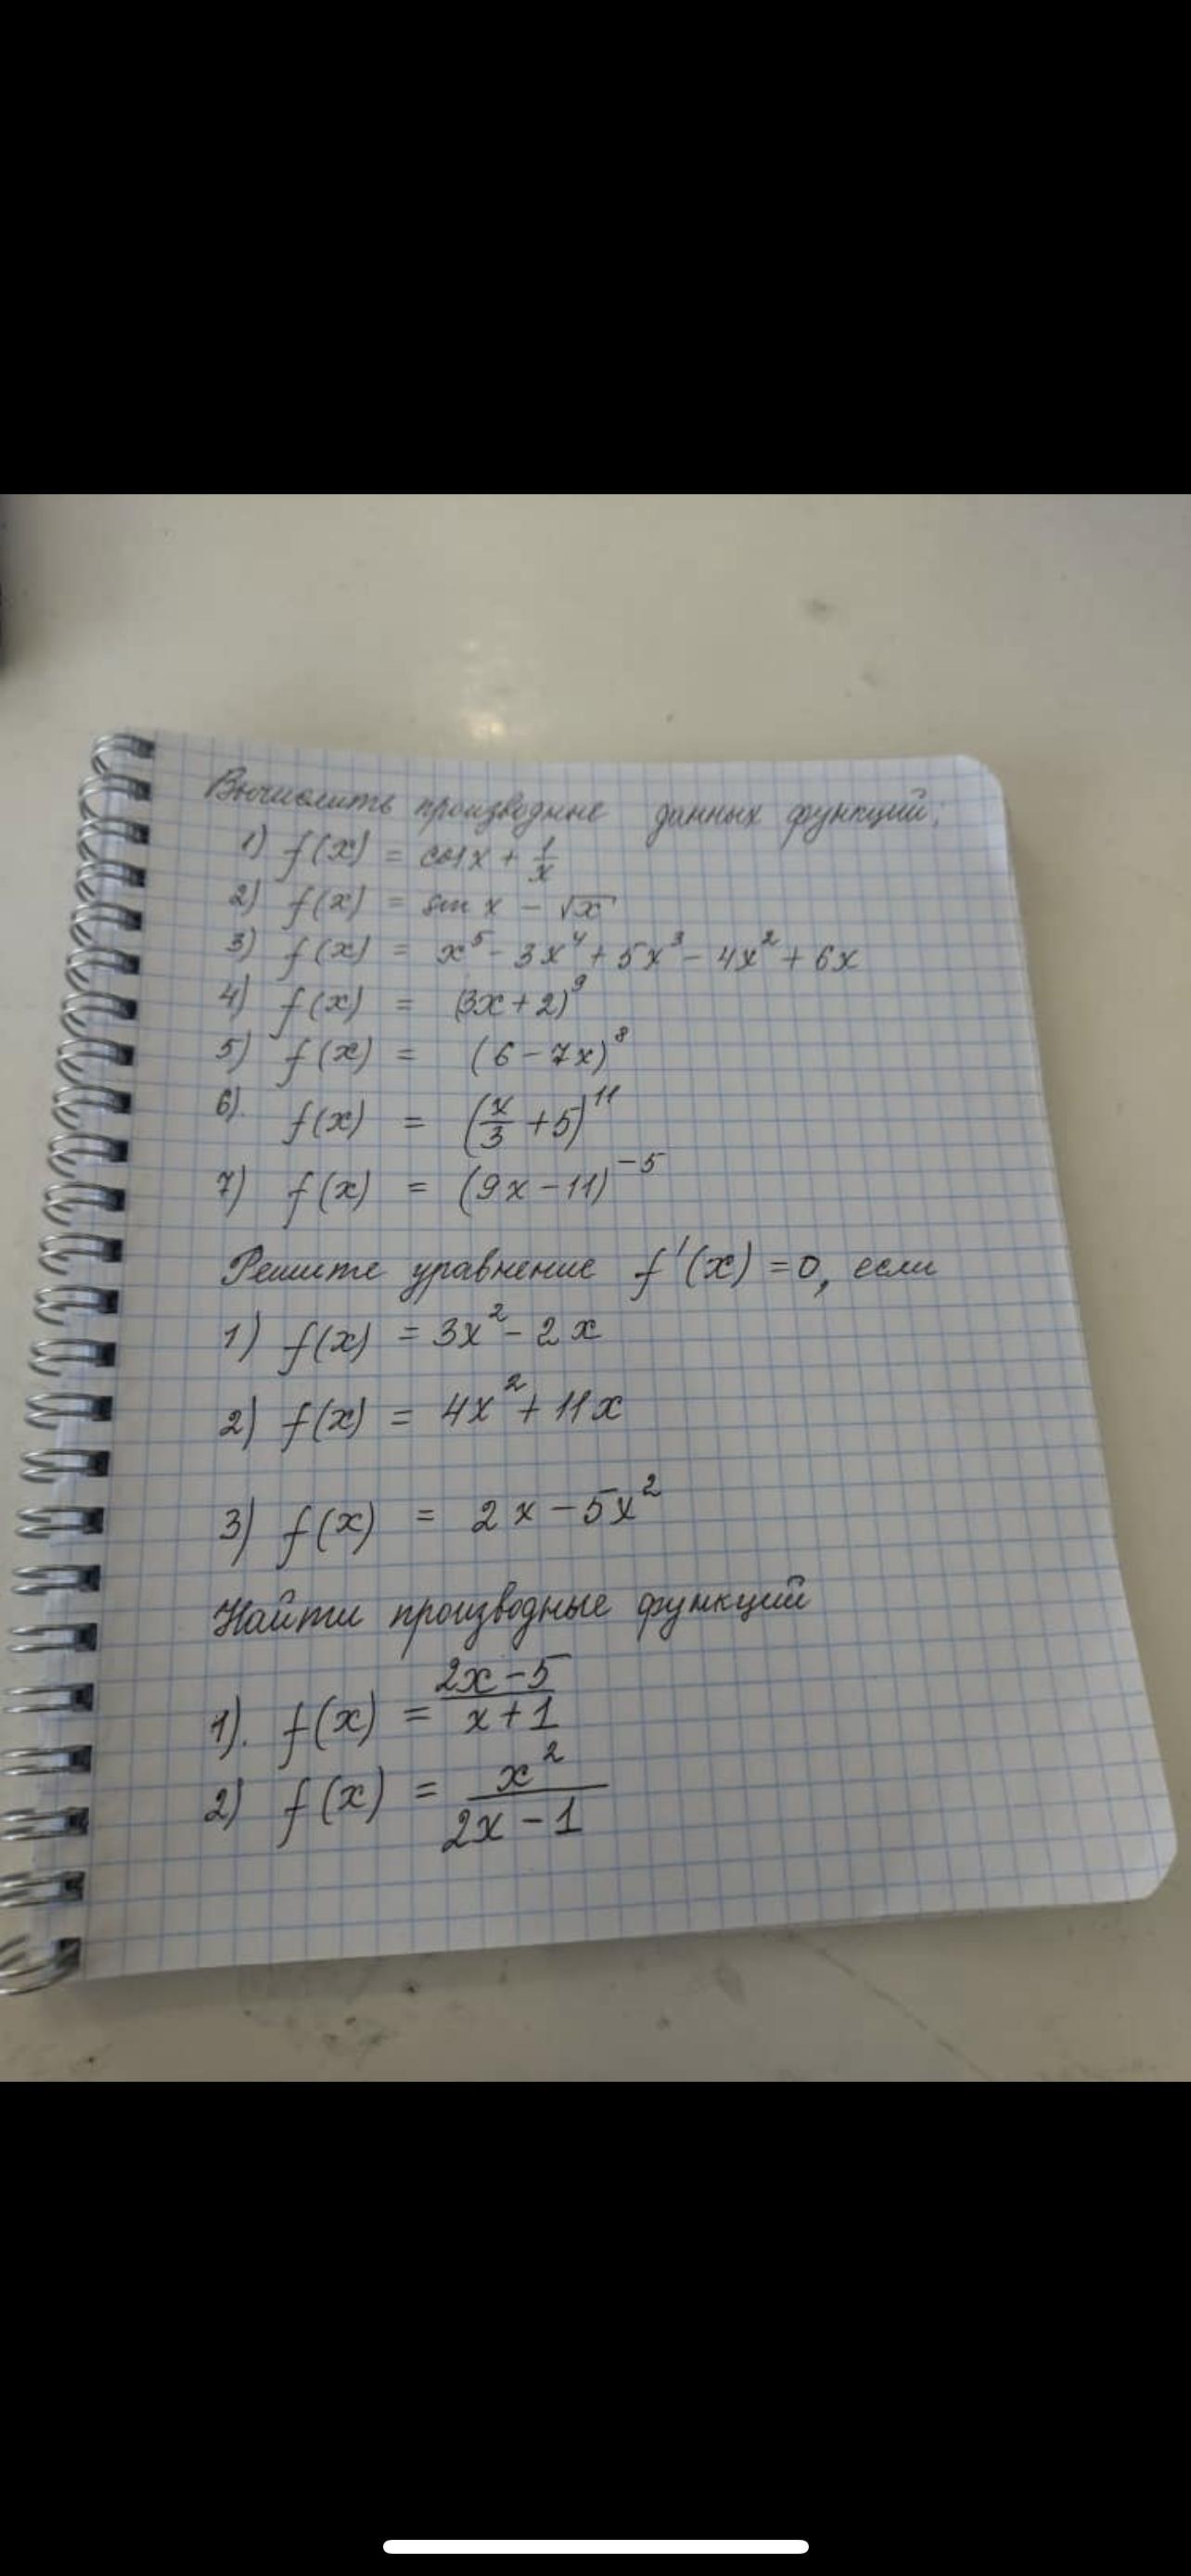 Вычислить производные данных функций:
1) f(x) = cos x + 1/x
2) f(x) = sin x - √x
3) f(x) = x⁵ - 3x⁴ + 5x³ - 4x² + 6x
4) f(x) = (3x + 2)⁹
5) f(x) = (6 - 7x)⁸
6). f(x) = (x/3 + 5)¹¹
7) f(x) = (9x - 11)⁻⁵
Решите уравнение f'(x) = 0, если
1) f(x) = 3x² - 2x
2) f(x) = 4x² + 11x
3) f(x) = 2x - 5x²
Найти производные функций
1). f(x) = (2x - 5)/(x + 1)
2) f(x) = x²/(2x - 1)